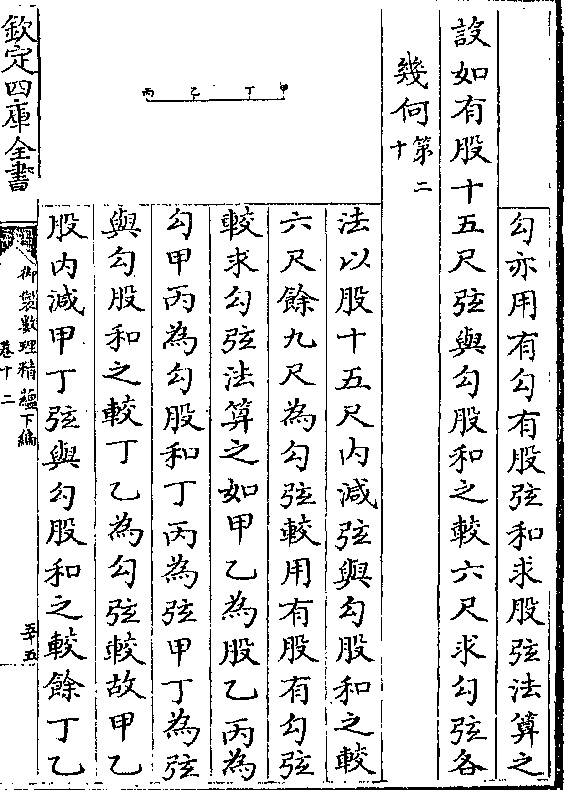 勾亦用有勾有股弦和求股弦法算之
設如有股十五尺弦與勾股和之較六尺求勾弦各
幾何 第二十
法以股十五尺内減弦與勾股和之較
六尺餘九尺為勾弦較用有股有勾弦
較求勾弦法算之如甲乙為股乙丙為
勾甲丙為勾股和丁丙為弦甲丁為弦
與勾股和之較丁乙為勾弦較故甲乙
股内減甲丁弦與勾股和之較餘丁乙
甲 丁 乙 丙
欽定四庫全書
御製數理精蘊下編
卷十二